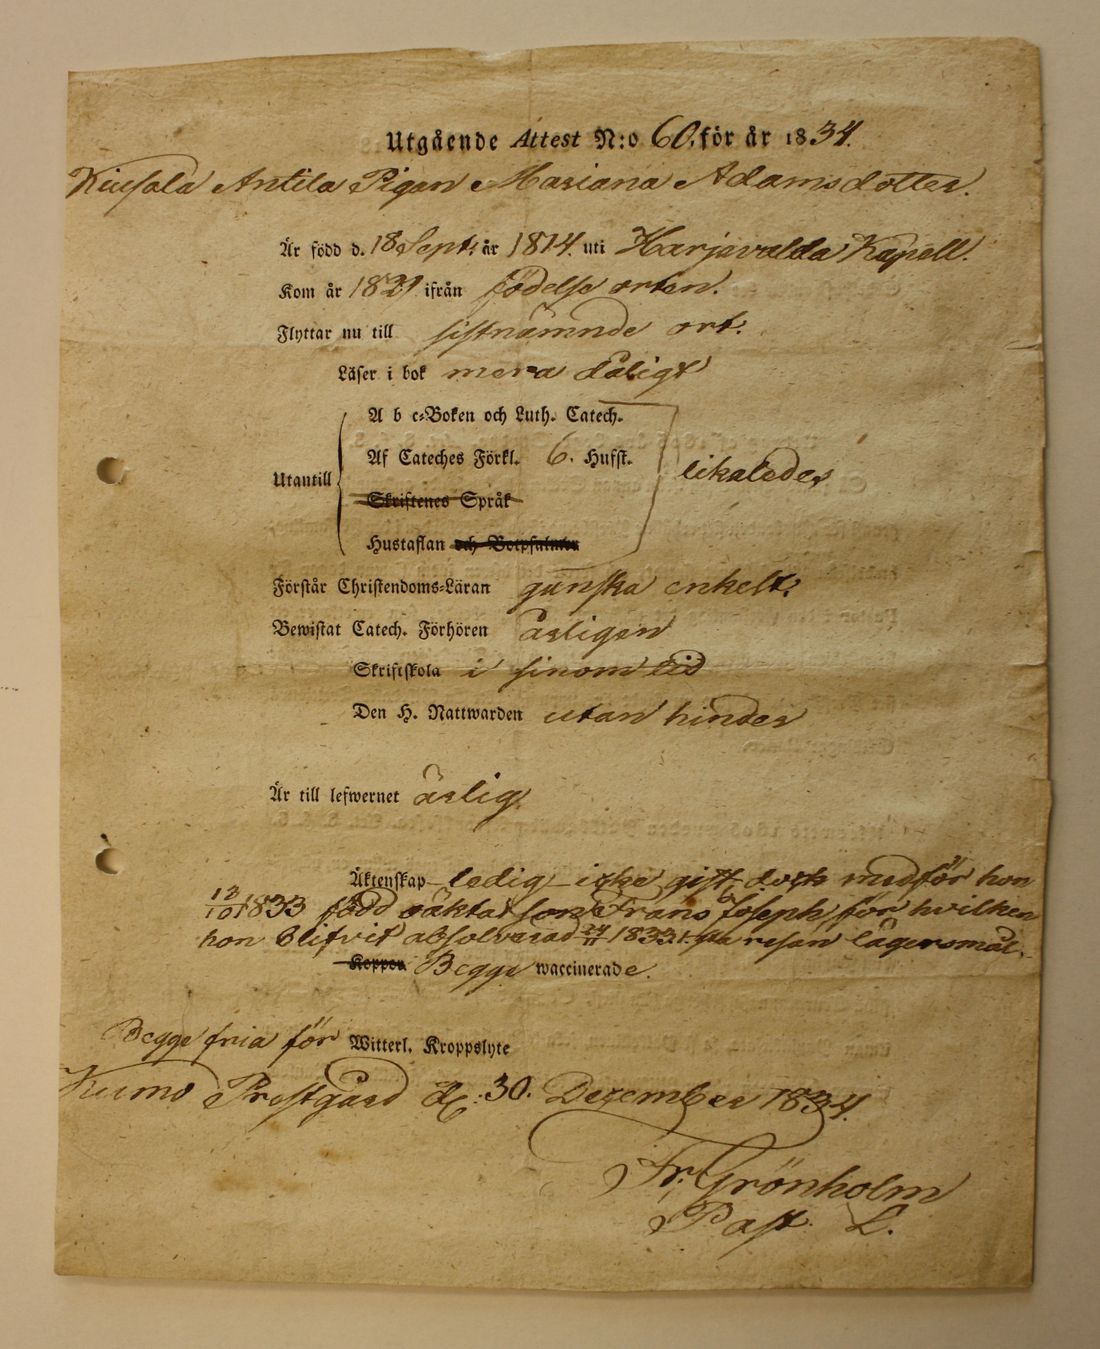 Utgående Attest N:o 60. för år 1834.
Kiusala Antila Pigan Mariana Adamsdotter.
Är född d. 18 Sept: år 1814. uti Harjavalda Kapell.
Kom år 1831 ifrån födelse orten.
Flyttar nu till sistnämnde ort.
Läser i bok mera dåligt
A b c-Boken och Luth. Catech.
Af Cateches Förkl. 6. Hufst.
Utantill likaledes
Skriftenes Språk
Hustaflan och Botpsalmen
Förstår Christendoms-Läran ganska enkelt.
Bewistat Catech. Förhören årligen
Skriftskola i sinom tid
Den H. Nattwarden utan hinder
Är till lefwernet ärlig
Äktenskap ledig – icke gift, dock medför hon
12/10 1833 född oäkta son Frans Joseph, for hvilken
hon blifvit absolverad 24/11 1833. 1:sta resan lägersmål.
Koppor Begge waccinerade.
Begge fria för Witterl. Kroppslyte
Kumo Prestgård d: 30. Dezember 1834.
Fr: Grönholm
Past: L.